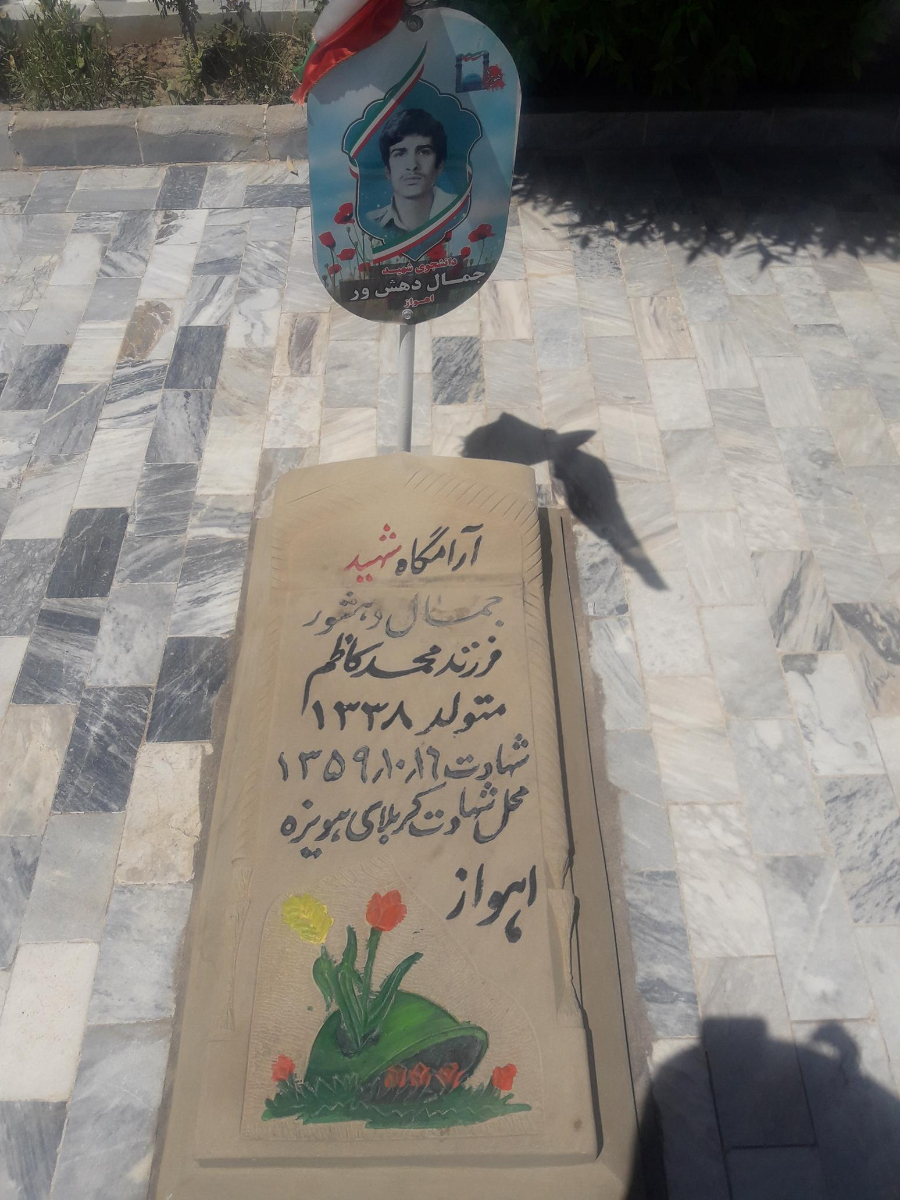 دانشجوی شهید
جمال دهش ور
اهواز
آرامگاه شهید
جمال دهشور
فرزند محمد کاظم
متولد ۱۳۳۸
شهادت ۱۳۵۹٫۱۰٫۱۶
محل شهادت کربلای هویزه
اهواز